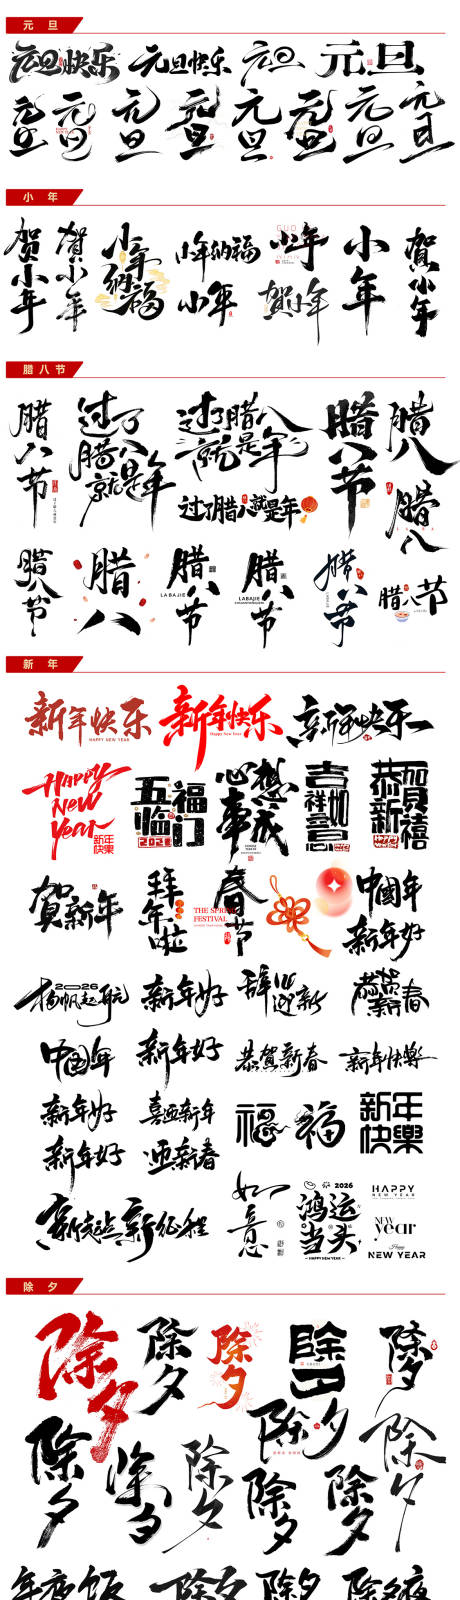 元旦
元旦快乐 元旦快乐 元旦 元旦
元旦 元旦 元旦 元旦 元旦 元旦 元旦 元旦
小年
贺小年 贺小年 小年纳福 小年纳福 小年 小年 贺小年
小年 贺小年
腊八节
腊八节 过了腊八就是年 过了腊八就是年 腊八节 腊八
过了腊八就是年 腊八
腊八节 腊八 腊八节 腊八节 腊八节 腊八节
LABAJIE
新年
新年快乐 新年快乐 新年快乐
HAPPY NEW YEAR Happy New Year
Happy New Year 新年快樂 五福临门 2021 心想事成 吉祥如意 恭贺新禧
贺新年 拜年啦 春节 中國年
THE SPRING FESTIVAL
新年好
2026
扬帆起航 新年好 辞旧迎新 恭贺新春
中國年 新年好 恭贺新春 新年快樂
新年好 喜迎新年 福 福 新年快樂
新年好 迎新春
新起点 新征程 如意 鸿运当头 2026
HAPPY NEW YEAR
HAPPY
NEW YEAR
NEW year
Happy
NEW YEAR
除夕
除夕 除夕 除夕 除夕 除夕
除夕 除夕 除夕 除夕 除夕 除夕 除夕
年夜饭 除夕 除夕 除夕夜